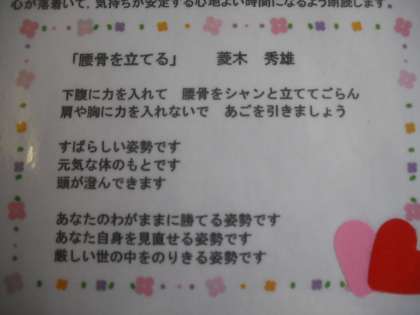 心が落着いて、気持ちが安定する心地よい時間になるよう朗読します。
「腰骨を立てる」　菱木　秀雄
下腹に力を入れて　腰骨をシャンと立ててごらん
肩や胸に力を入れないで　あごを引きましょう
すばらしい姿勢です
元気な体のもとです
頭が澄んできます
あなたのわがままに勝てる姿勢です
あなた自身を見直せる姿勢です
厳しい世の中をのりきる姿勢です